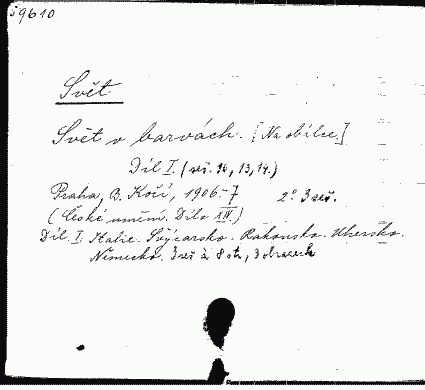 59610
Svět
Svět v barvách. [Na obálce.]
Díl I. (seš. 10, 13, 14.)
Praha, B. Kočí, 1906-7 2° 3 seš.
(České umění. Dílo XIV)
Díl. I. Italie. Švýcarsko. Rakousko. Uhersko.
Německo. 3 seš à 8 str, 3 obrazech